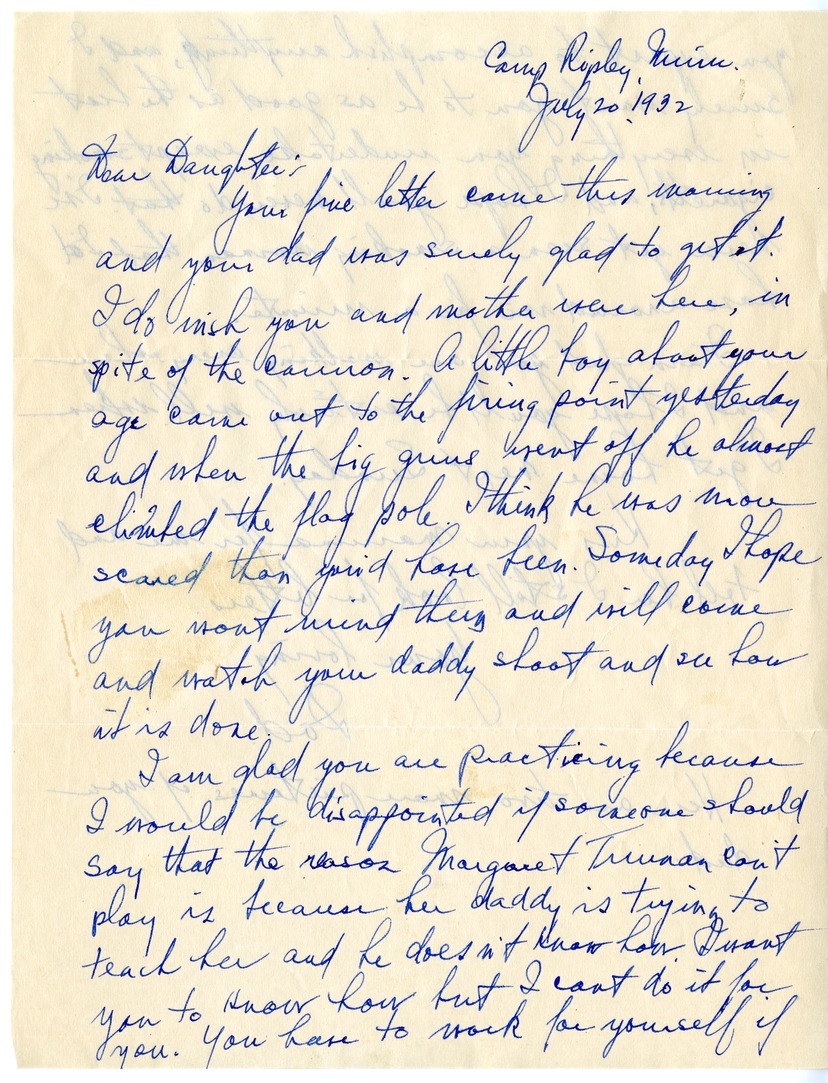 Camp Ripley, Minn.
July 20, 1932
Dear Daughter:-
Your fine letter came this morning
and your dad was surely glad to get it.
I do wish you and mother were here, in
spite of the cannon. A little boy about your
age came out to the firing point yesterday
and when the big guns went off he almost
climbed the flag pole. I think he was more
scared than you'd have been. Someday I hope
you wont mind them and will come
and watch your daddy shoot and see how
it is done.
I am glad you are practicing because
I would be disappointed if someone should
say that the reason Margaret Truman can't
play is because her daddy is trying to
teach her and he doesn't know how. I want
you to know how but I cant do it for
you. You have to work for yourself if